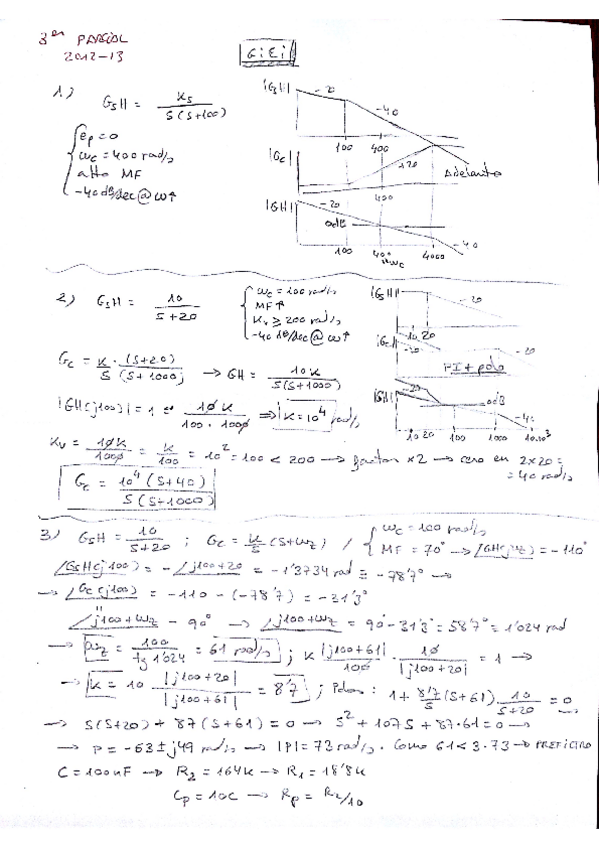 3er PARCIAL
2012-13
GIEI
1.) GsH = Ks / S(S+100)
ep=0
ωc = 400 rad/s
alto MF
-40 dB/dec @ ω↑
|GsH| -20 -40
100 400
|Gc| +20 Adelanto
400
|GH| -20
0dB -40
100 400 4000
ωc
2) GsH = 10 / S+20
ωc = 100 rad/s
MF↑
Kv ≥ 200 rad/s
-40 dB @ ω↑
|GsH| -20
10 20
|GcH| -20 -20
PI + polo
|GH| 0dB
-40
10 20 100 1000 10·10³
Gc = K/S · (S+20)/(S+1000) → GH = 10K / S(S+1000)
|GH(j100)| = 1 = 10K / 100·1000 ⇒ K = 10⁴ rad/s
Kv = 10K/1000 = K/100 = 10² = 100 < 200 → factor ×2 → cero en 2×20 =
= 40 rad/s
Gc = 10⁴ (S+40) / S(S+1000)
3) GsH = 10 / S+20 ; Gc = K/S (S+ωz) / ωc = 100 rad/s
MF = 70° → ∠GH(jωc) = -110°
∠GsH(j100) = -∠j100+20 = -1'3734 rad ≡ -78'7° →
→ ∠Gc(j100) = -110 - (-78'7) = -31'3°
∠j100+ωz - 90° → ∠j100+ωz = 90°-31'3° = 58'7° = 1'024 rad
→ ωz = 100 / tg 1'024 = 61 rad/s ; K |j100+61| / 100 · 10 / |j100+20| = 1 →
→ K = 10 |j100+20| / |j100+61| = 8'7 ; Polos: 1 + 8'7/S (S+61) 10/S+20 = 0
→ S(S+20) + 87(S+61) = 0 → S² + 107S + 87·61 = 0 →
→ P = -63 ± j49 rad/s → |P| = 73 rad/s. Como 61 < 3·73 → PREFILTRO
C = 100nF → R2 = 164K → R1 = 18'8K
Cp = 10C → Rp = R2/10